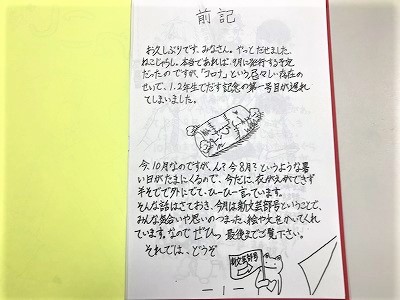 前記
お久しぶりです、みなさん。やっとだせました、
ねこじゃらし。本当であれば、9月に発行する予定
だったのですが、「コロナ」という忌々しい存在の
せいで、1、2年生でだす記念の第一号目が遅れ
てしまいました。
今、10月なのですが、ん?今8月?というような暑
い日がたまにくるので、今だに、衣がえができず
半そでで外にでて、ひーひー言っています。
そんな話はさておき、今月は新文芸部号ということで、
みんな気合いや思いのつまった、絵や文をかいてくれ
ています。なので ぜひっ 最後までご覧下さい。
それでは、どうぞ
新文芸部号
ー1ー